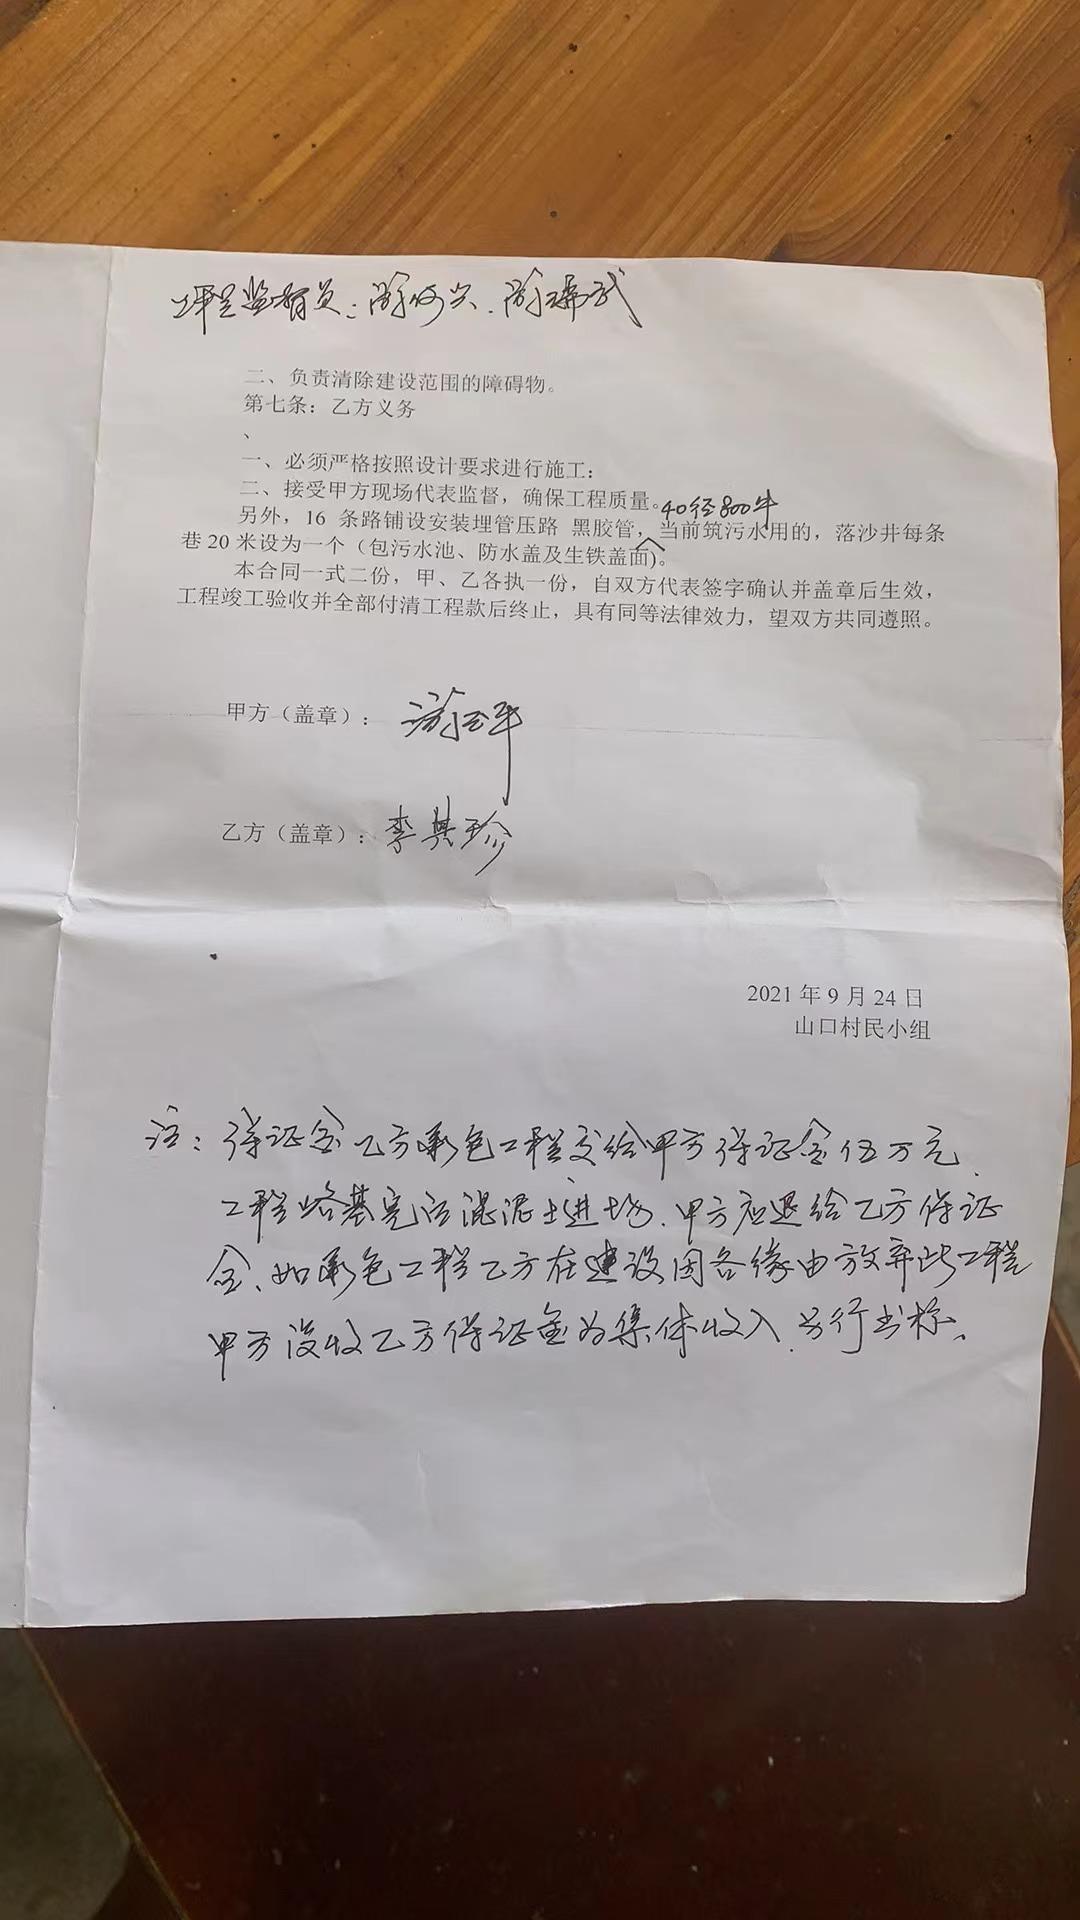 工程监督员：
二、负责清除建设范围的障碍物。
第七条：乙方义务
、
一、必须严格按照设计要求进行施工：
二、接受甲方现场代表监督，确保工程质量。
40径800牛
另外，16 条路铺设安装埋管压路 黑胶管，当前筑污水用的，落沙井每条
巷 20 米设为一个（包污水池、防水盖及生铁盖面)。
本合同一式二份，甲、乙各执一份，自双方代表签字确认并盖章后生效，
工程竣工验收并全部付清工程款后终止，具有同等法律效力，望双方共同遵照。
甲方（盖章）：
乙方（盖章）：李其珍
2021 年 9 月 24 日
山口村民小组
注：保证金乙方承包工程交给甲方保证金伍万元、
工程路基完后混泥土进场、甲方应退给乙方保证
金、如承包工程乙方在建设因各缘由放弃此工程
甲方没收乙方保证金为集体收入、另行书标、